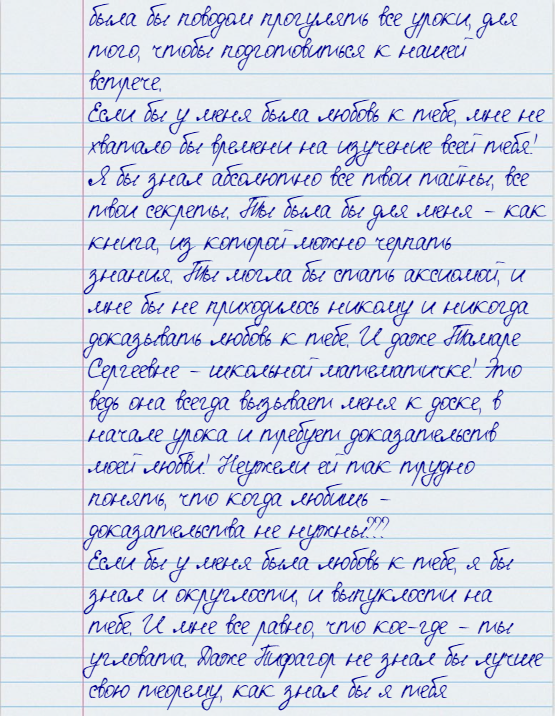 была бы поводом прогулять все уроки, для
того, чтобы подготовиться к нашей
встрече.
Если бы у меня была любовь к тебе, мне не
хватало бы времени на изучение всей тебя!
Я бы знал абсолютно все твои тайны, все
твои секреты. Ты была бы для меня – как
книга, из которой можно черпать
знания. Ты могла бы стать аксиомой, и
мне бы не приходилось никому и никогда
доказывать любовь к тебе. И даже Тамаре
Сергеевне – школьной математичке! Это
ведь она всегда вызывает меня к доске, в
начале урока и требует доказательств
моей любви! Неужели ей так трудно
понять, что когда любишь –
доказательства не нужны???
Если бы у меня была любовь к тебе, я бы
знал и округлости, и выпуклости на
тебе. И мне все равно, что кое-где – ты
угловата. Даже Пифагор не знал бы лучше
свою теорему, как знал бы я тебя